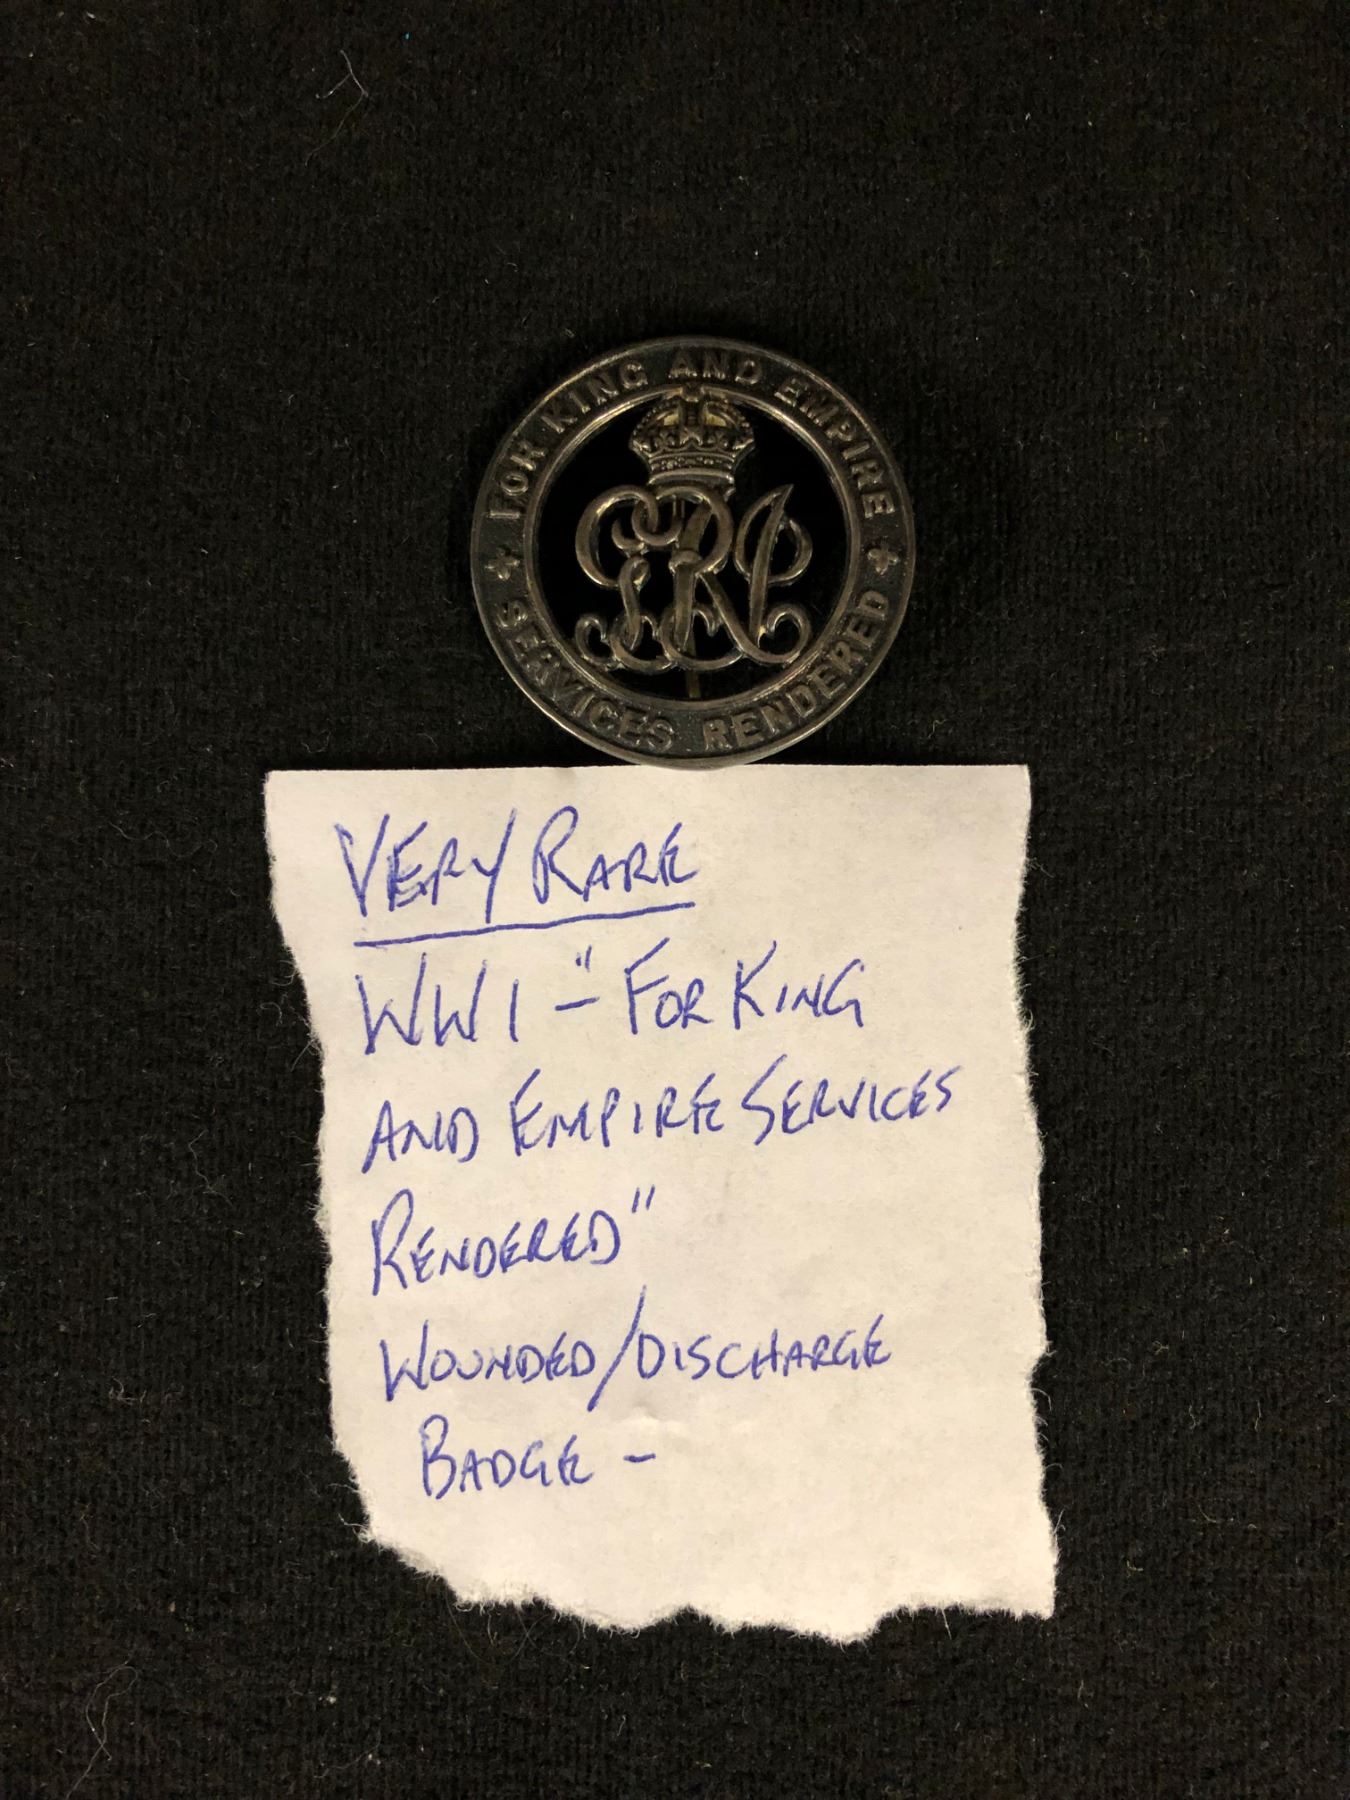 FOR KING AND EMPIRE
SERVICES RENDERED
GRI
VERY RARE
WW1 - "FOR KING
AND EMPIRE SERVICES
RENDERED"
WOUNDED/DISCHARGE
BADGE -